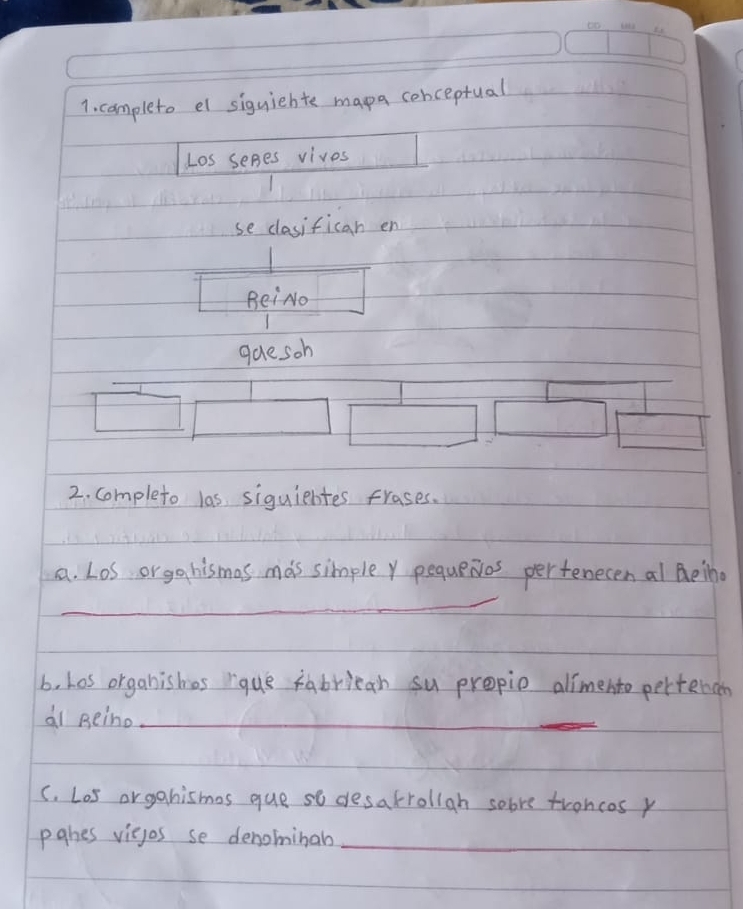 DD MM AA
1. completo el siguiente mapa conceptual
Los seres vivos
se clasifican en
Reino
que son
2. completo las siguientes frases.
a. Los organismos más simple y pequeños pertenecen al Reino
b. Los organismos que fabrican su propio alimento pertenen
al Reino.
c. Los organismos que se desarrollan sobre troncos y
panes viejos se denominan